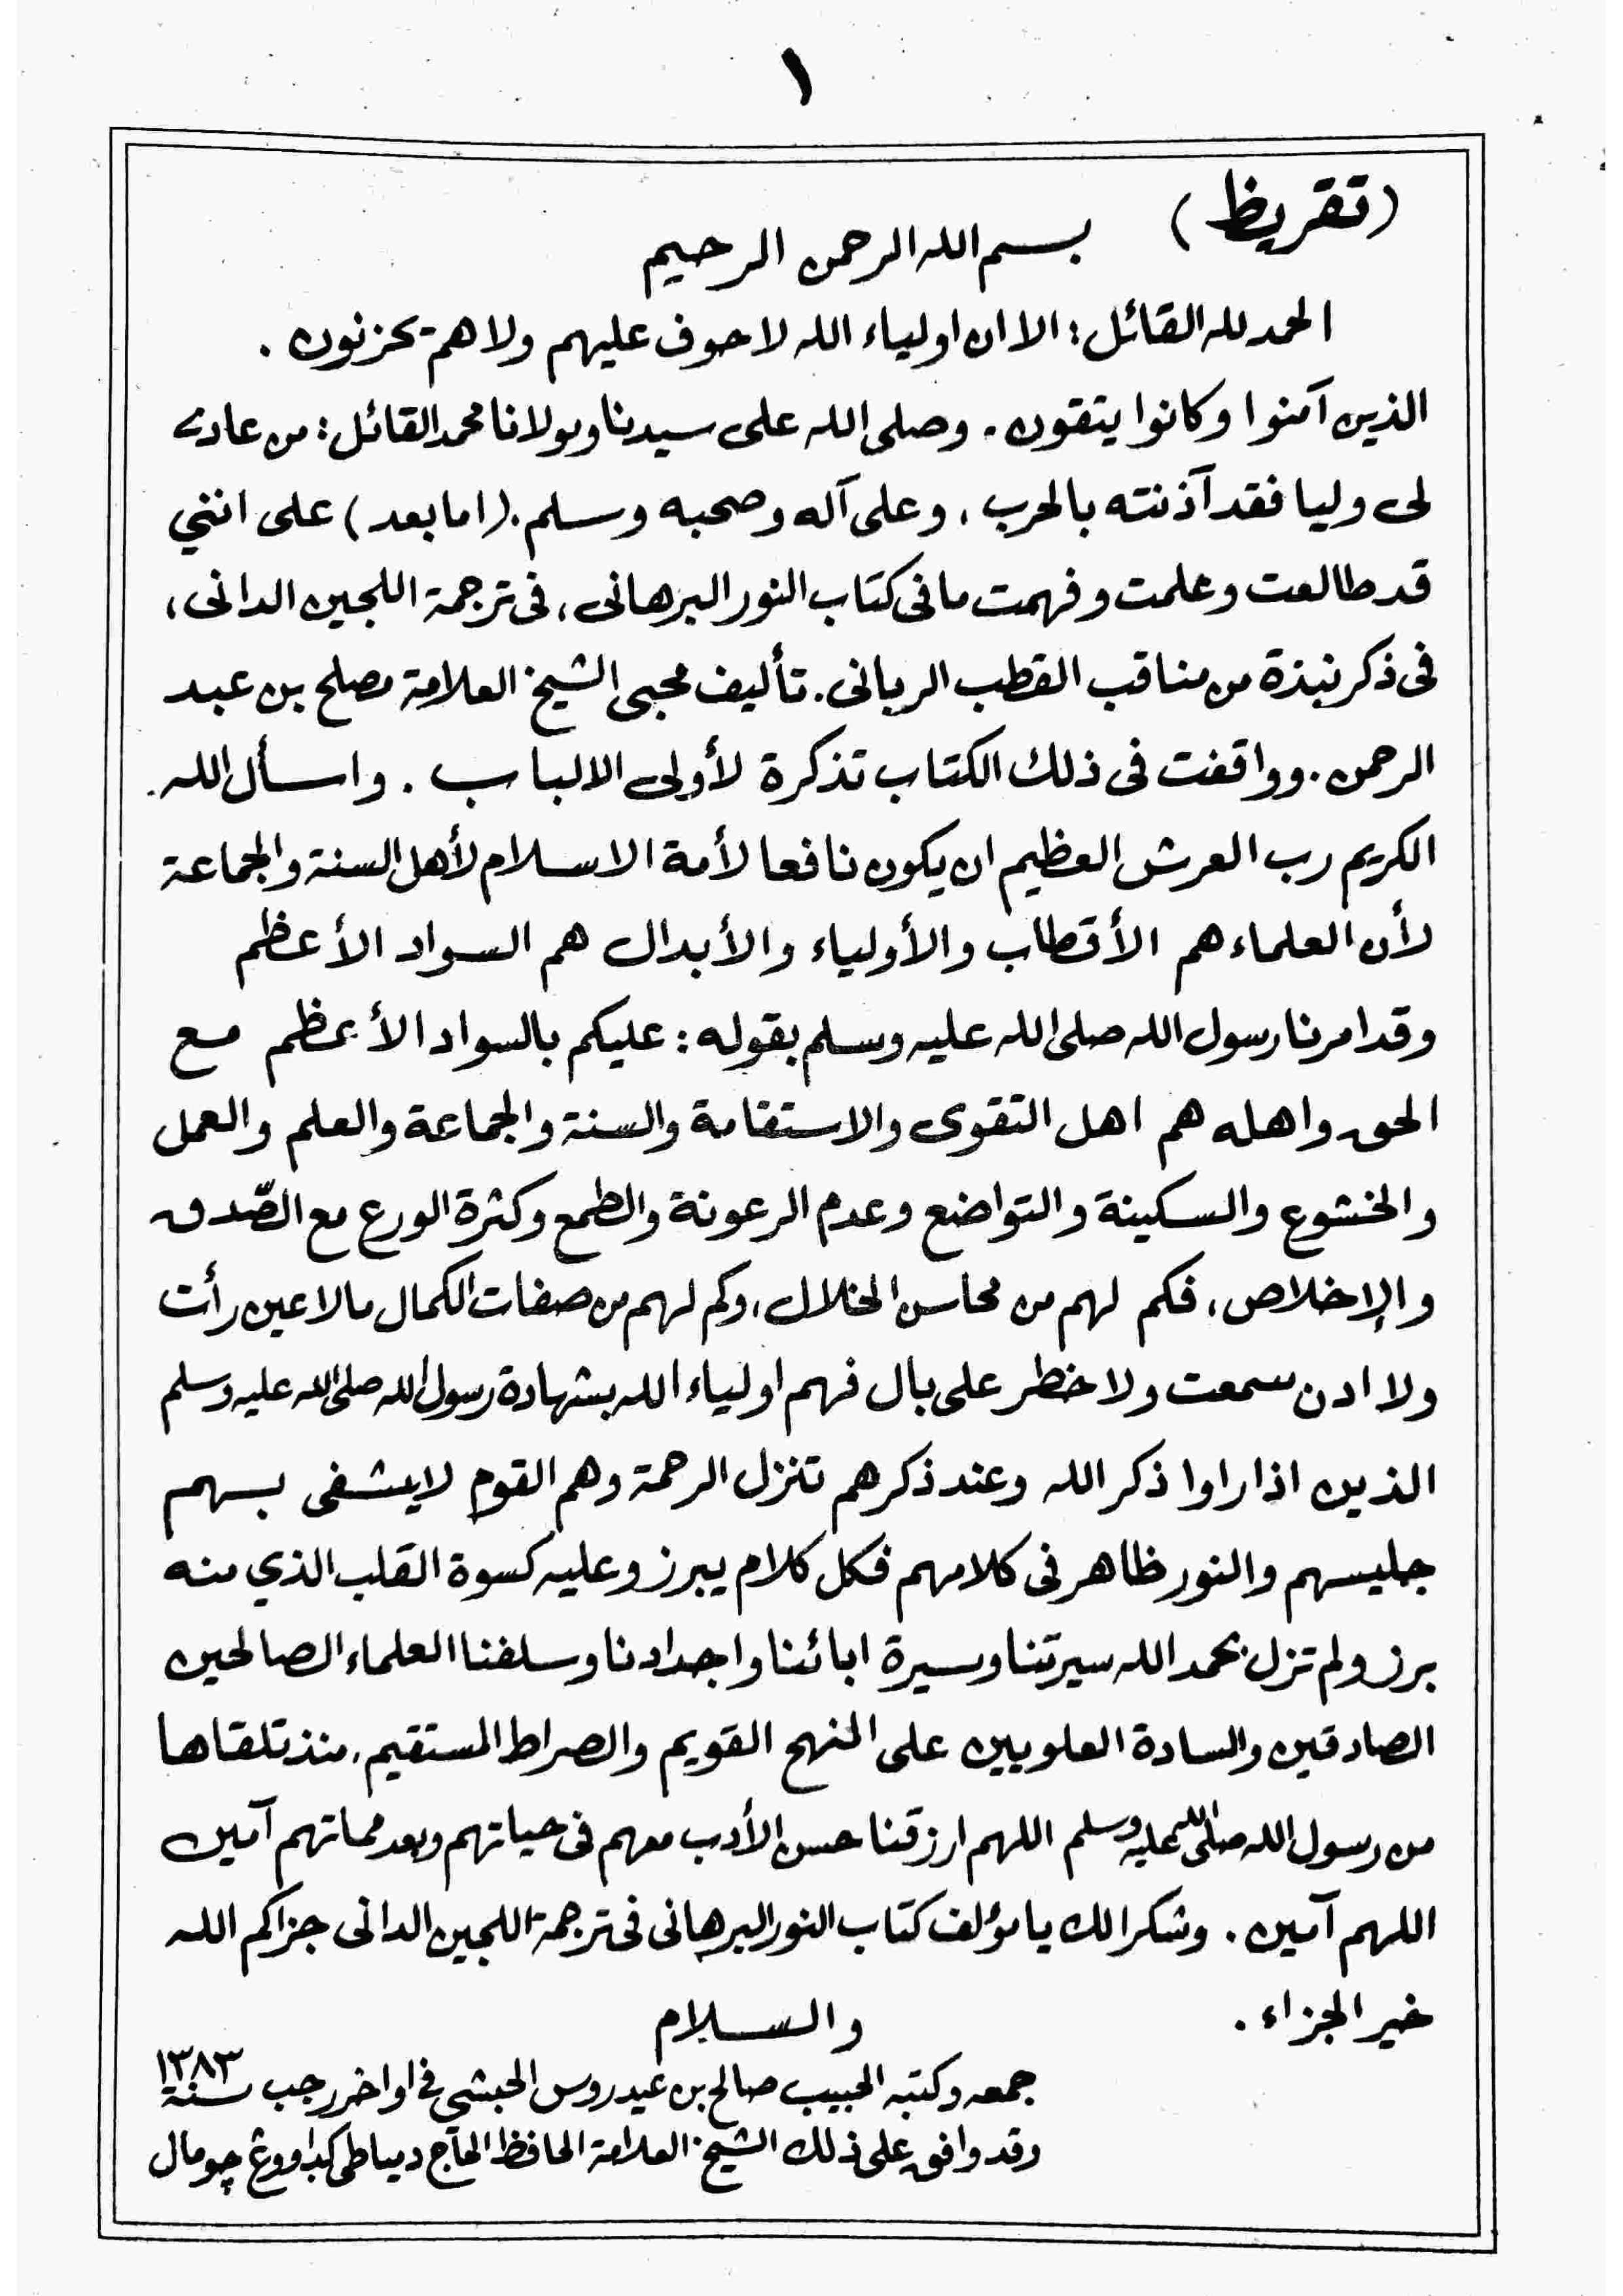 ١
(تقريظ)
بسم الله الرحمن الرحيم
الحمد لله القائل : الا ان اولياء الله لا حوف عليهم ولا هم يحزنون .
الذين آمنوا وكانوا يتقون . وصلى الله على سيدنا ومولانا محمد القائل : من عادى
لى وليا فقد آذنته بالحرب ، وعلى آله وصحبه وسلم . (اما بعد) على انني
قد طالعت وعلمت وفهمت ما فى كتاب النور البرهانى ، فى ترجمة اللجين الدانى ،
فى ذكر نبذة من مناقب القطب الربانى . تأليف محبى الشيخ العلامة مصلح بن عبد
الرحمن . وواقفت فى ذلك الكتاب تذكرة لأولى الالباب . واسأل الله .
الكريم رب العرش العظيم ان يكون نافعا لأمة الاسلام لأهل السنة والجماعة
لأن العلماء هم الأقطاب والأولياء والأبدال هم السواد الأعظم
وقد امرنا رسول الله صلى الله عليه وسلم بقوله : عليكم بالسواد الأعظم مع
الحق واهله هم اهل التقوى والاستقامة والسنة والجماعة والعلم والعمل
والخشوع والسكينة والتواضع وعدم الرعونة والطمع وكثرة الورع مع الصّدق
والإخلاص ، فكم لهم من محاسن الخلال ، وكم لهم من صفات الكمال مالا عين رأت
ولا ادن سمعت ولا خطر على بال فهم اولياء الله بشهادة رسول الله صلى الله عليه وسلم
الذين اذا راوا ذكر الله وعند ذكرهم تنزل الرحمة وهم القوم لايشفى بسهم
جليسهم والنور ظاهر فى كلامهم فكل كلام يبرز وعليه كسوة القلب الذي منه
برز ولم تزل بحمد الله سيرتنا وسيرة ابائنا واجدادنا وسلفنا العلماء الصالحين
الصادقين والسادة العلويين على المنهج القويم والصراط المستقيم ، منذ تلقاها
من رسول الله صلى الله عليه وسلم اللهم ارزقنا حسن الأدب معهم فى حياتهم وبعد مماتهم آمين
اللهم آمين . وشكرا لك يا مؤلف كتاب النور البرهانى فى ترجمة اللجين الدانى جزاكم الله
خير الجزاء .
والسلام
جمعه وكتبه الحبيب صالح بن عيدروس الحبشي في اواخر رجب سنة ١٣٨٣
وقد وافق على ذلك الشيخ العلامة الحافظ الحاج دمياطى چومال